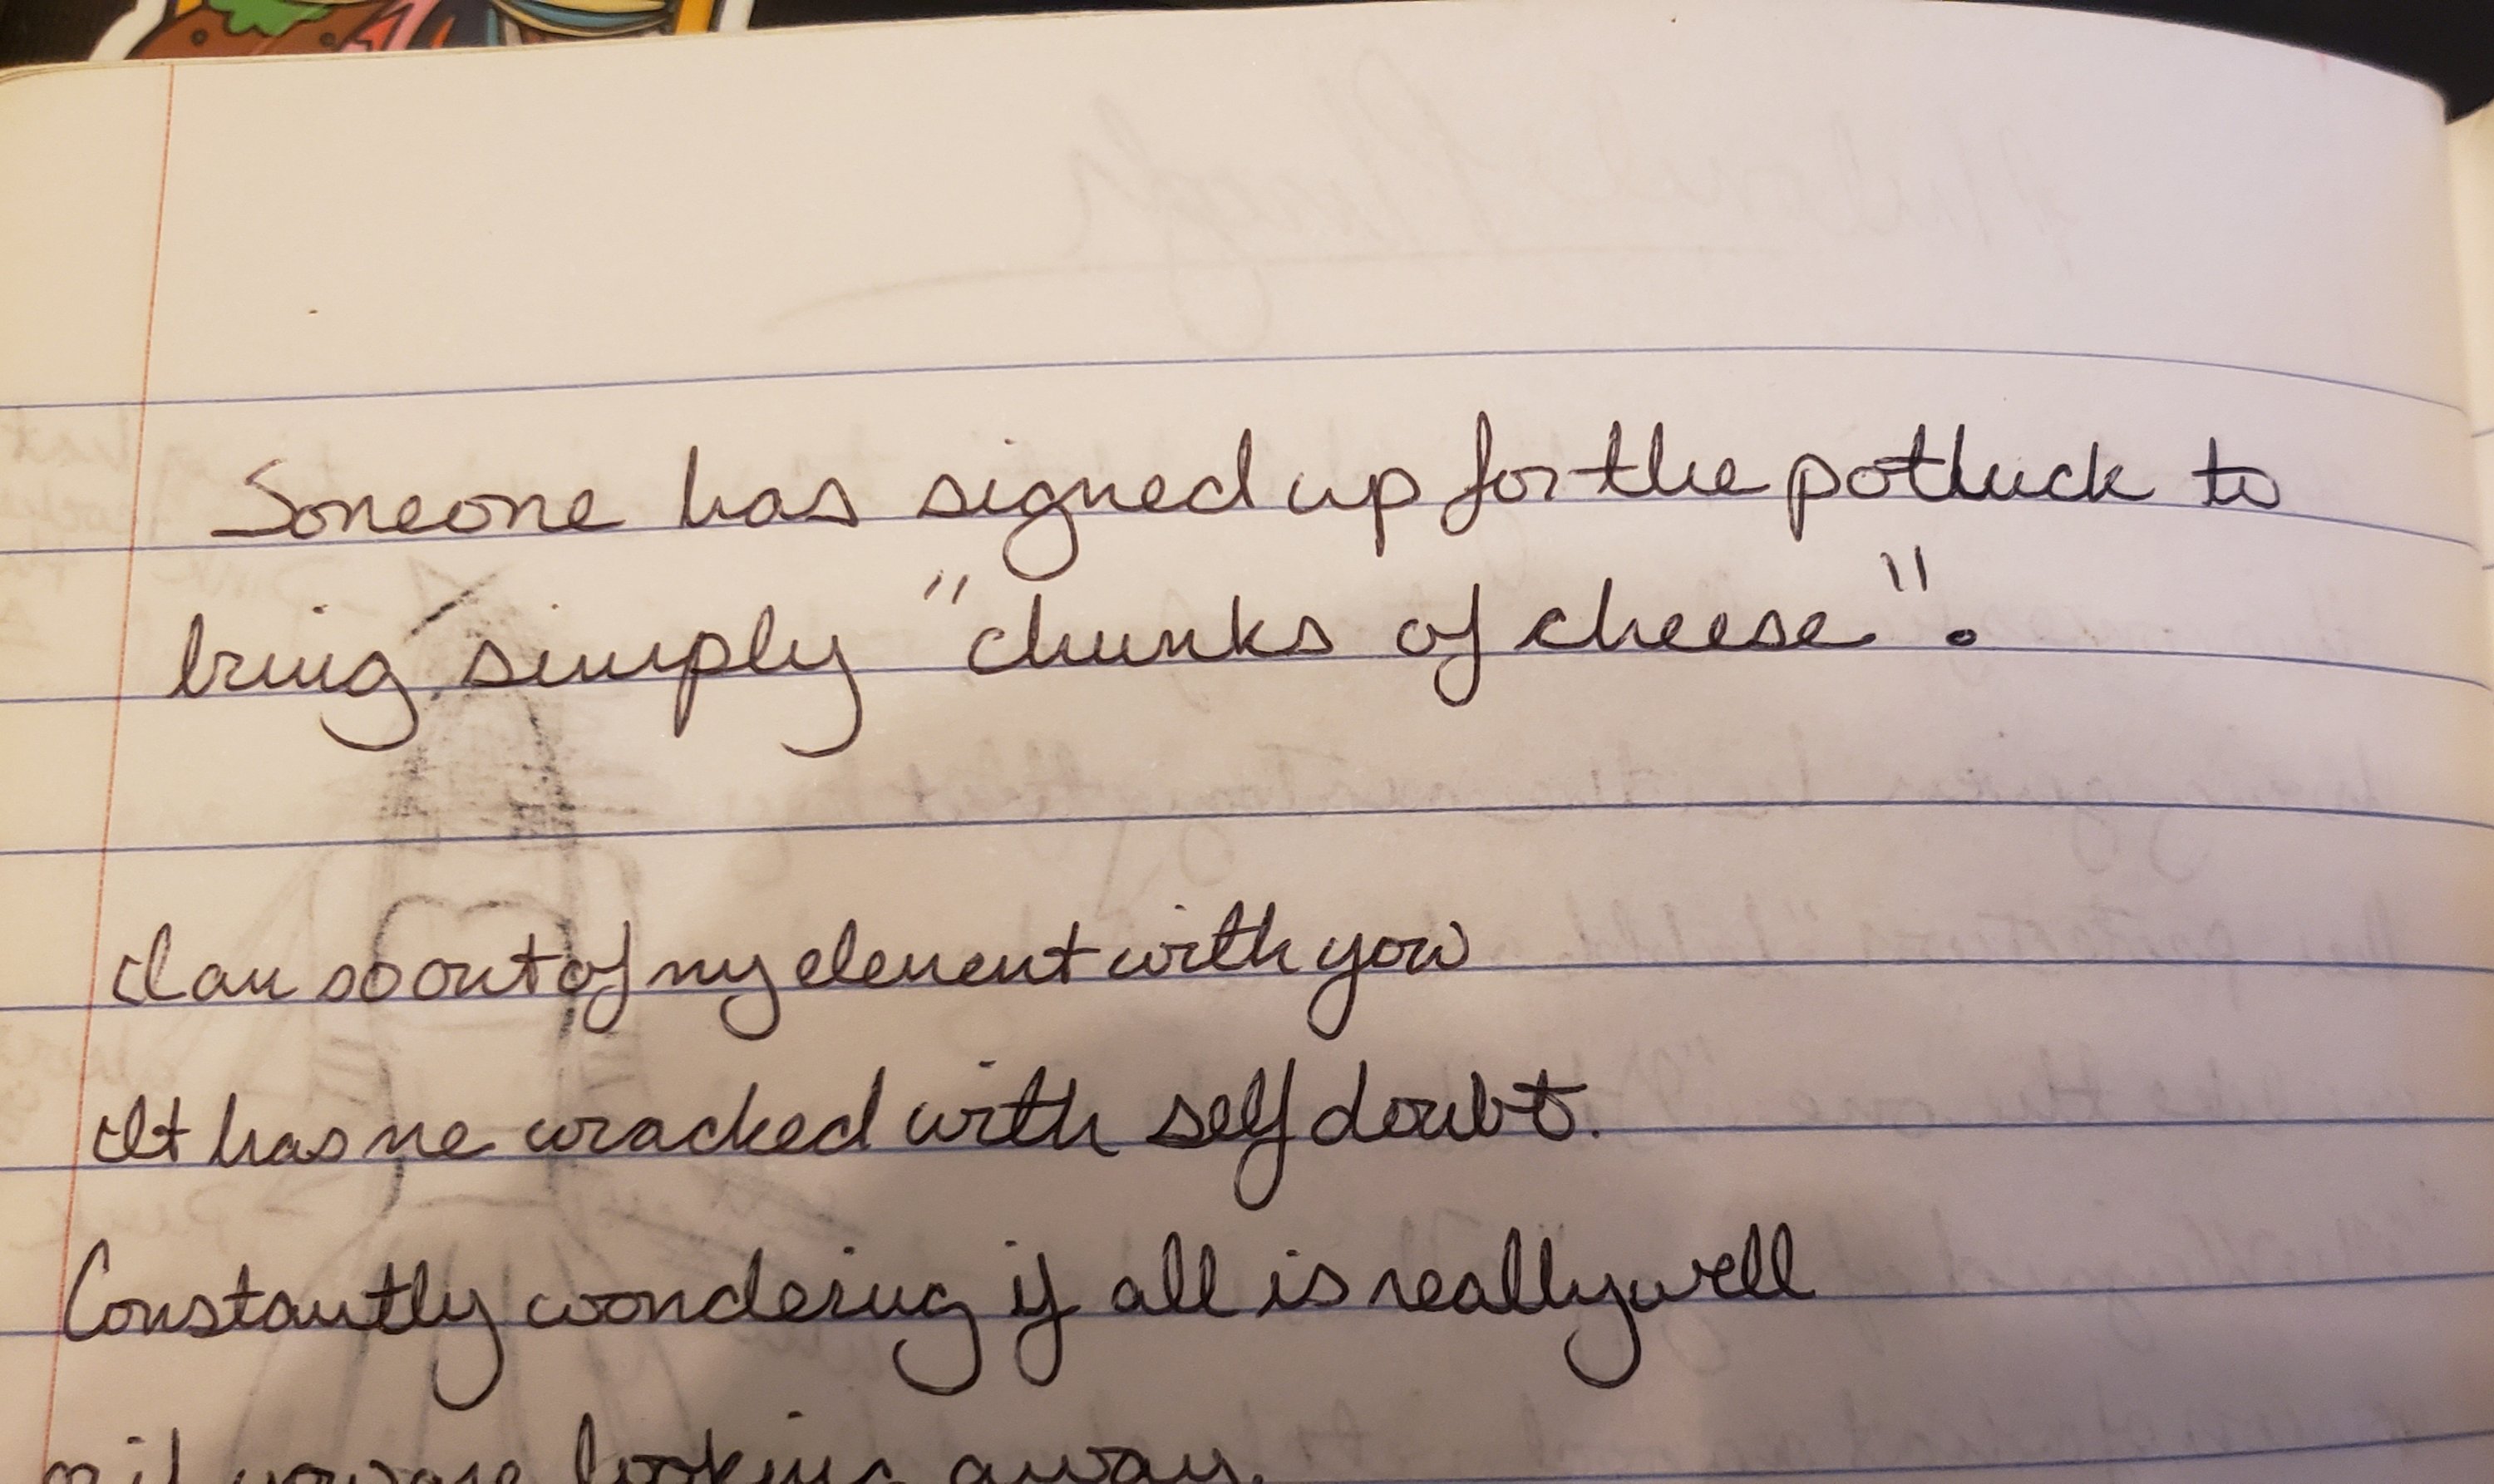 Someone has signed up for the potluck to
bring simply "chunks of cheese".
I am so out of my element with you
It has me wracked with self doubt.
Constantly wondering if all is really well
or if you are looking away.